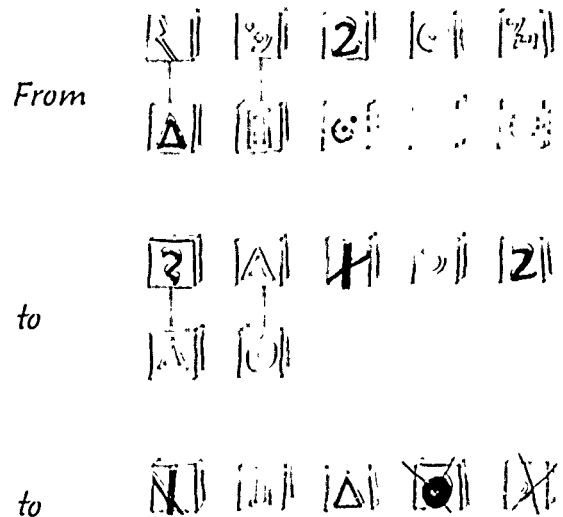 2
From
2
to
to